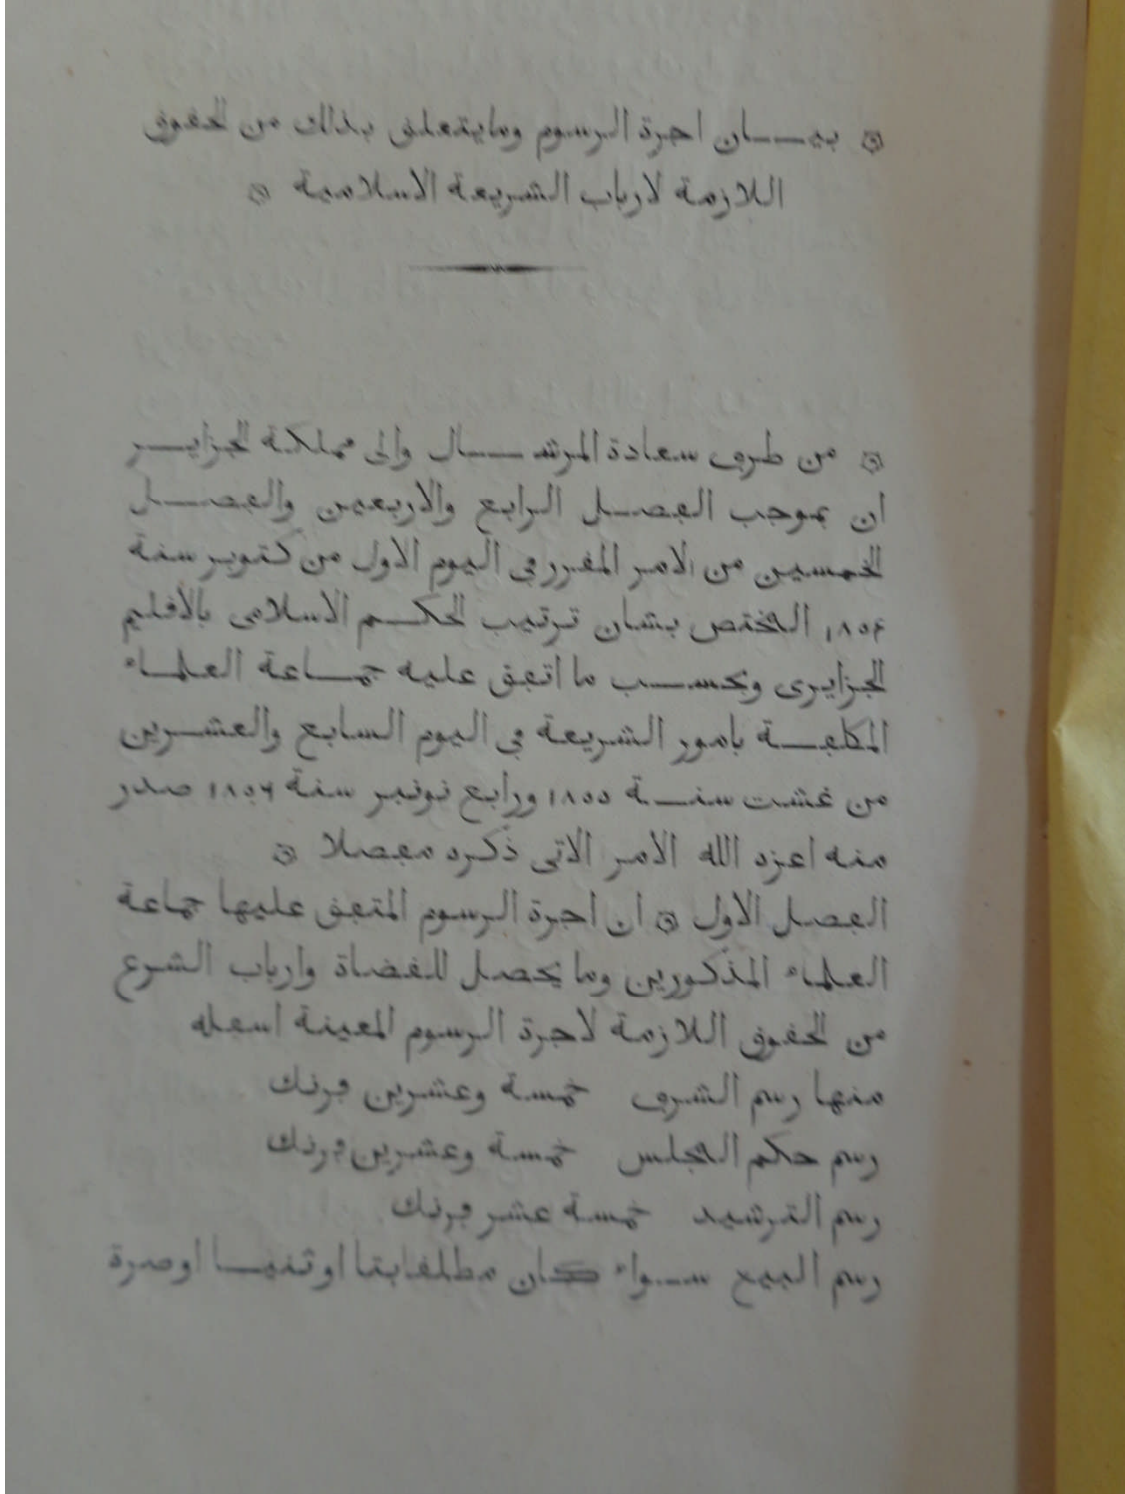 بيـــان اجرة الرسوم وما يتعلق بذالك من الحقوق
اللازمة لارباب الشريعة الاسلامية
من طرف سعادة المرشـــال والى مملكة الجزايـــر
ان بموجب الفصـــل الرابع والاربعين والفصـــل
الخمسين من الامر المقرر في اليوم الاول من كتوبر سنة
١٨٥٤ المختص بشان ترتيب الحكـــم الاسلامى بالأقليم
الجزايرى وبحســـب ما اتفق عليه جمـــاعة العلماء
المكلفـــة بامور الشريعة في اليوم السابع والعشـــرين
من غشت سنـــة ١٨٥٥ ورابع نونبر سنة ١٨٥٦ صدر
منه اعزه الله الامر الاتى ذكره مفصلا
الفصل الاول ان اجرة الرسوم المتفق عليها جماعة
العلماء المذكورين وما يحصل للقضاة وارباب الشرع
من الحقوق اللازمة لاجرة الرسوم المعينة اسفله
منها رسم الشرف خمسة وعشرين فرنك
رسم حكم المجلس خمسة وعشرين فرنك
رسم الترشيد خمسة عشر فرنك
رسم البيع ســـواء كان مطلقا بتا او ثنيـــا او صرة